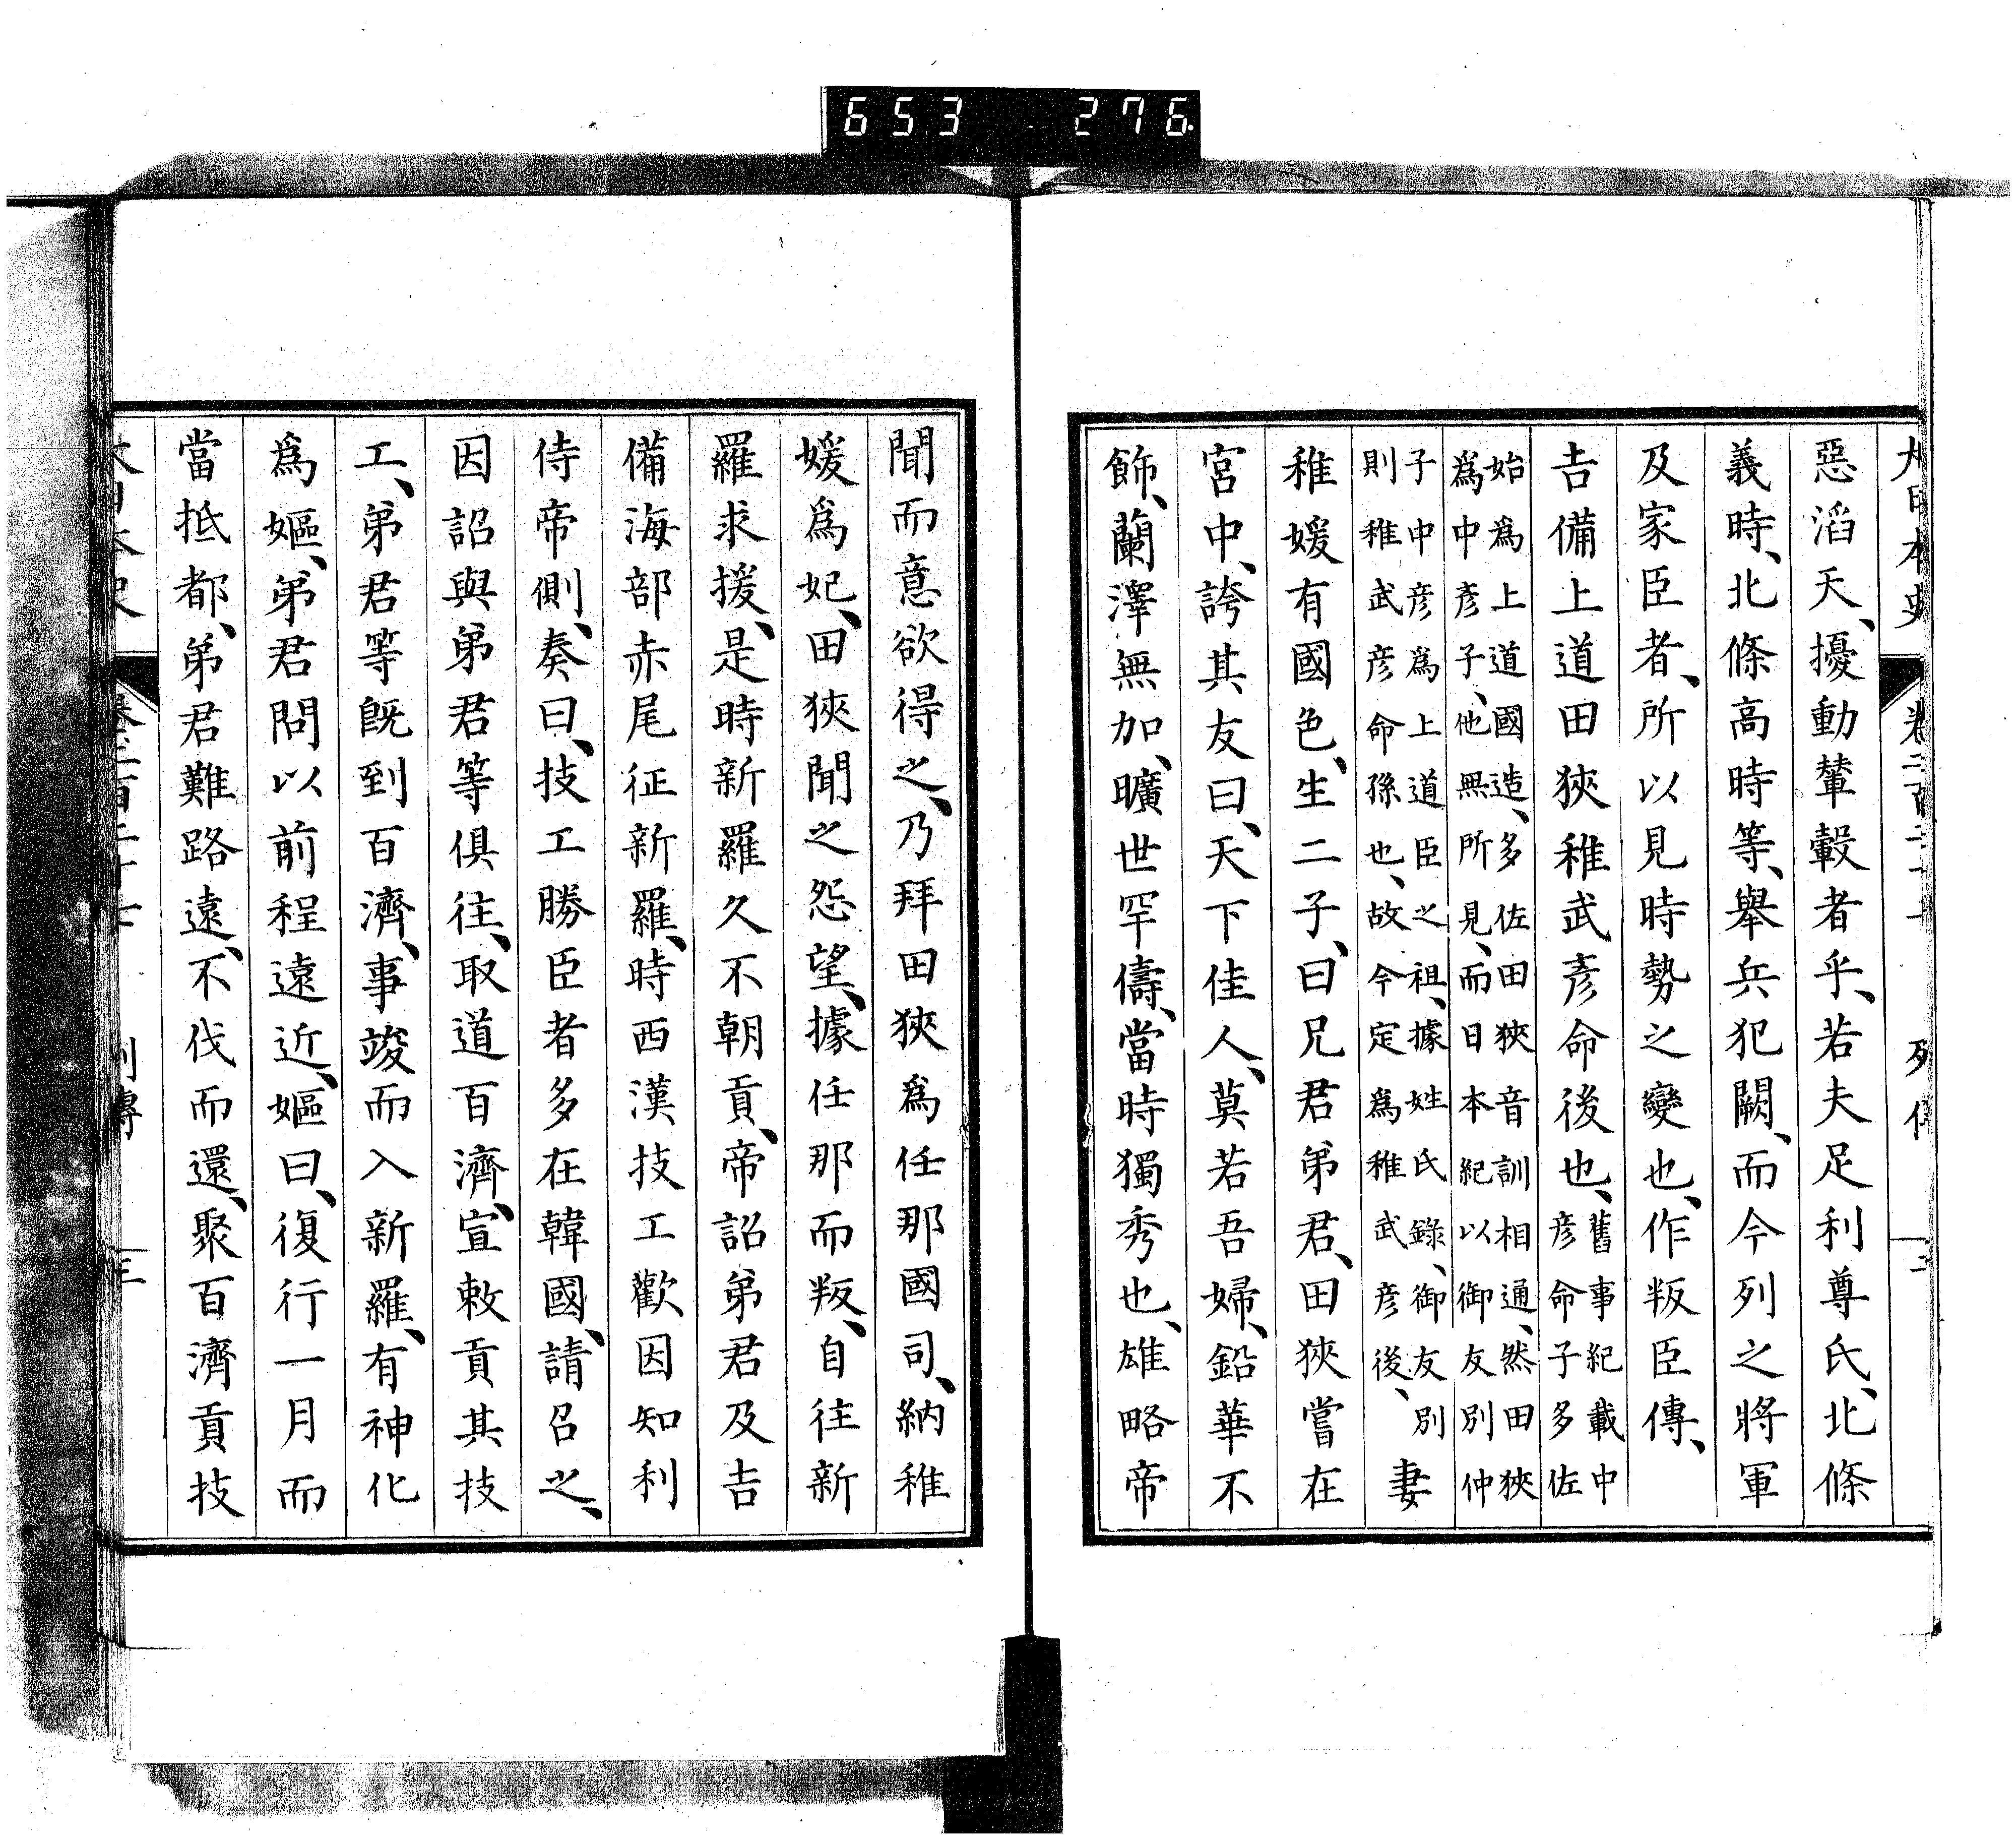 653 276
惡滔天、擾動輦轂者乎、若夫足利尊氏、北條
義時、北條高時等、舉兵犯闕、而今列之將軍
及家臣者、所以見時勢之變也、作叛臣傳、
吉備上道田狹稚武彥命後也、舊事紀載中彥命子多佐
始爲上道國造、多佐田狹音訓相通、然田狹爲中彥子、他無所見、而日本紀以御友別仲
子中彥爲上道臣之祖、據姓氏錄、御友別則稚武彥命孫也、故今定爲稚武彥後、妻
稚媛有國色、生二子、曰兄君弟君、田狹嘗在
宮中、誇其友曰、天下佳人、莫若吾婦、鉛華不
飾、蘭澤無加、曠世罕儔、當時獨秀也、雄略帝
聞而意欲得之、乃拜田狹爲任那國司、納稚
媛爲妃、田狹聞之怨望、據任那而叛、自往新
羅求援、是時新羅久不朝貢、帝詔弟君及吉
備海部赤尾征新羅、時西漢技工歡因知利
侍帝側、奏曰、技工勝臣者多在韓國、請召之、
因詔與弟君等俱往、取道百濟、宣敕貢其技
工、弟君等既到百濟、事竣而入新羅、有神化
爲嫗、弟君問以前程遠近、嫗曰、復行一月而
當抵都、弟君難路遠、不伐而還、聚百濟貢技